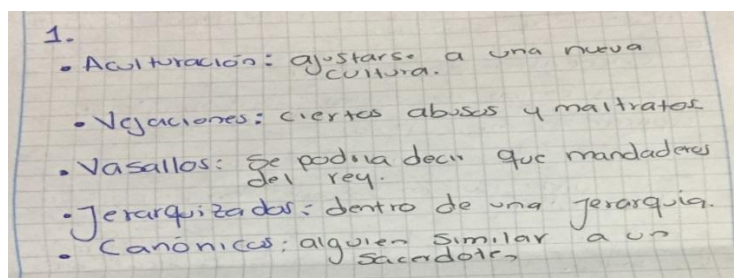 1.
• Aculturación: ajustarse a una nueva
cultura.
• Vejaciones: ciertos abusos y maltratos
• Vasallos: Se podría decir que mandaderos
del rey.
• Jerarquizadas: dentro de una jerarquía.
• Canónicos: alguien similar a un
sacerdote